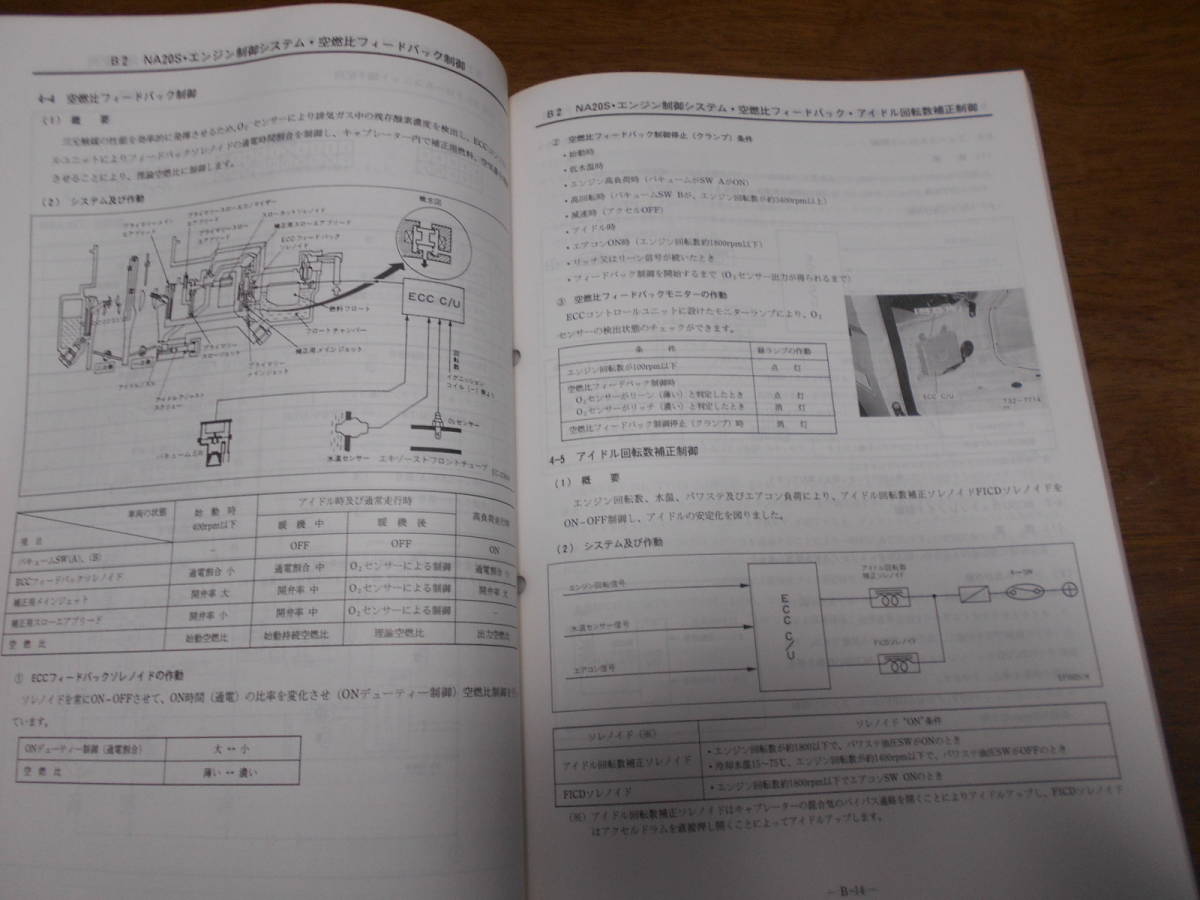 B2 NA20S・エンジン制御システム・空燃比フィードバック制御
4-4 空燃比フィードバック制御
(1) 概 要
三元触媒の性能を効率的に発揮させるため、O₂センサーにより排気ガス中の残存酸素濃度を検出し、ECCコント
ルユニットによりフィードバックソレノイドの通電時間割合を制御し、キャブレーター内で補正用燃料、空気量を
させることにより、理論空燃比に制御します。
(2) システム及び作動
プライマリーメイン
エアブリード
プライマリースロー
エアブリード
スローカットソレノイド
補正用スローエアブリード
ECCフィードバック
ソレノイド
拡大図
燃料フロート
フロートチャンバー
補正用メインジェット
プライマリー
メインジェット
プライマリー
スロージェット
アイドルアジャスト
スクリュー
ECC C/U
回転数
イグニッション
コイル(−)側より
O₂センサー
水温センサー
エキゾーストフロントチューブ
車両の状態
項目
始動時
400rpm以下
アイドル時及び通常走行時
暖機中
暖機後
高負荷走行時
バキュームSW(A)、(B) − OFF OFF ON
ECCフィードバックソレノイド 通電割合 小 通電割合 中 O₂センサーによる制御 通電割合 小
補正用メインジェット 開弁率 大 開弁率 中 O₂センサーによる制御 開弁率 大
補正用スローエアブリード 開弁率 小 開弁率 中 O₂センサーによる制御 −
空燃比 始動空燃比 始動持続空燃比 理論空燃比 出力空燃比
① ECCフィードバックソレノイドの作動
ソレノイドを常にON-OFFさせて、ON時間(通電)の比率を変化させ(ONデューティー制御)空燃比制御を行
ています。
ONデューティー制御(通電割合) 大 ↔ 小
空燃比 薄い ↔ 濃い
B2 NA20S・エンジン制御システム・空燃比フィードバック・アイドル回転数補正制御
② 空燃比フィードバック制御停止(クランプ)条件
・始動時
・低水温時
・エンジン高負荷時(バキュームがSW AがON)
・高回転時(バキュームSW Bが、エンジン回転数が約3400rpm以上)
・減速時(アクセルOFF)
・アイドル時
・エアコンON時(エンジン回転数約1800rpm以下)
・リッチ又はリーン信号が続いたとき
・フィードバック制御を開始するまで(O₂センサー出力が得られるまで)
③ 空燃比フィードバックモニターの作動
ECCコントロールユニットに設けたモニターランプにより、O₂
センサーの検出状態のチェックができます。
条件 緑ランプの作動
エンジン回転数が100rpm以下 点灯
空燃比フィードバック制御時
O₂センサーがリーン(薄い)と判定したとき 点灯
O₂センサーがリッチ(濃い)と判定したとき 消灯
空燃比フィードバック制御停止(クランプ)時 消灯
ECC C/U
4-5 アイドル回転数補正制御
(1) 概 要
エンジン回転数、水温、パワステ及びエアコン負荷により、アイドル回転数補正ソレノイドFICDソレノイドを
ON-OFF制御し、アイドルの安定化を図りました。
(2) システム及び作動
エンジン回転信号
水温センサー信号
エアコン信号
ECC C/U
アイドル回転数
補正ソレノイド
FICDソレノイド
キーSW
ソレノイド(※) ソレノイド“ON”条件
アイドル回転数補正ソレノイド ・エンジン回転数が約1800以下で、パワステ油圧SWがONのとき
・冷却水温15~75℃、エンジン回転数が約1400rpm以下で、パワステ油圧SWがOFFのとき
FICDソレノイド ・エンジン回転数約1800rpm以下でエアコンSW ONのとき
(※) アイドル回転数補正ソレノイドはキャブレーターの混合気のバイパス通路を開くことによりアイドルアップし、FICDソレノイド
はアクセルドラムを直接押し開くことによってアイドルアップします。
— B-14 —